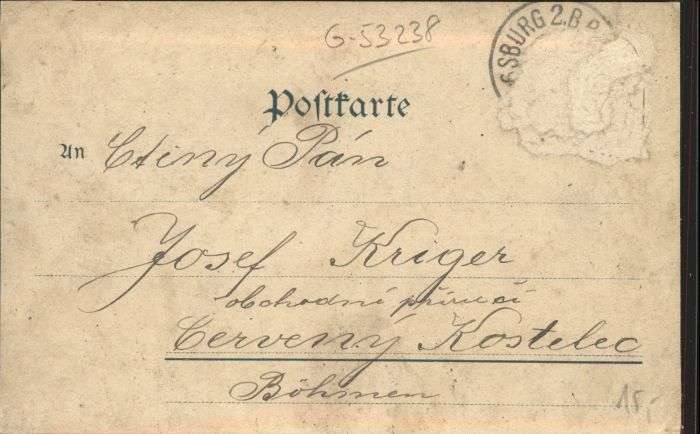 G-53238
GSBURG 2.B.P
Postkarte
An Ctěný Pán
Josef Kriger
obchodní příručí
Červený Kostelec
Böhmen
15,-